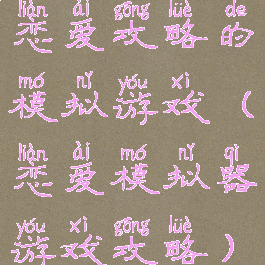 liàn ài gōng lüè de
恋爱攻略的
mó nǐ yóu xì
模拟游戏（
liàn ài mó nǐ qì
恋爱模拟器
yóu xì gōng lüè
游戏攻略）